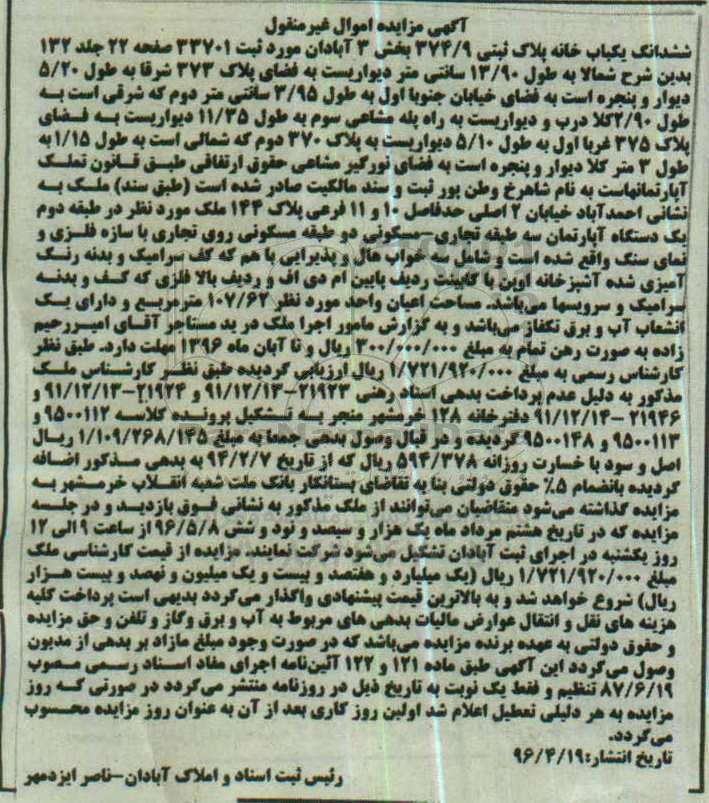 آگهی مزایده اموال غیرمنقول
ششدانگ یکباب خانه پلاک ثبتی ۳۷۴/۹ بخش ۳ آبادان مورد ثبت ۳۳۷۰۱ صفحه ۲۲ جلد ۱۳۲
بدین شرح شمالا به طول ۱۳/۹۰ سانتی متر دیواریست به فضای پلاک ۳۷۳ شرقا به طول ۵/۲۰
دیوار و پنجره است به فضای خیابان جنوبا اول به طول ۳/۹۵ سانتی متر دوم که شرقی است به
طول ۲/۹۰کلا درب و دیواریست به راه پله مشاعی سوم به طول ۱۱/۳۵ دیواریست به فضای
پلاک ۳۷۵ غربا اول به طول ۵/۱۰ دیواریست به پلاک ۳۷۰ دوم که شمالی است به طول ۱/۱۵به
طول ۳ متر کلا دیوار و پنجره است به فضای نورگیر مشاعی حقوق ارتفاقی طبق قانون تملک
آپارتمانهاست به نام شاهرخ وطن پور ثبت و سند مالکیت صادر شده است (طبق سند) ملک به
نشانی احمدآباد خیابان ۲ اصلی حدفاصل ۱۰ و ۱۱ فرعی پلاک ۱۴۴ ملک مورد نظر در طبقه دوم
یک دستگاه آپارتمان سه طبقه تجاری-مسکونی دو طبقه مسکونی روی تجاری با سازه فلزی و
نمای سنگ واقع شده است و شامل سه خواب هال و پذیرایی با هم که کف سرامیک و بدنه رنگ
آمیزی شده آشپزخانه اوپن با کابینت ردیف پایین ام دی اف و ردیف بالا فلزی که کف و بدنه
سرامیک و سرویسها می‌باشد. مساحت اعیان واحد مورد نظر ۱۰۷/۶۲ مترمربع و دارای یک
انشعاب آب و برق تکفاز می‌باشد و به گزارش مامور اجرا ملک در ید مستاجر آقای امیررحیم
زاده به صورت رهن تمام به مبلغ ۳۰۰/۰۰۰/۰۰۰ ریال و تا آبان ماه ۱۳۹۶ مهلت دارد. طبق نظر
کارشناس رسمی به مبلغ ۱/۷۲۱/۹۲۰/۰۰۰ ریال ارزیابی گردیده طبق نظر کارشناس ملک
مذکور به دلیل عدم پرداخت بدهی اسناد رهنی ۲۱۹۲۳-۹۱/۱۲/۱۳ و ۲۱۹۲۴-۹۱/۱۲/۱۳ و
۲۱۹۴۶ -۹۱/۱۲/۱۴ دفترخانه ۱۲۸ خرمشهر منجر به تشکیل پرونده کلاسه ۹۵۰۰۱۱۲ و
۹۵۰۰۱۱۳ و ۹۵۰۰۱۴۸ گردیده و در قبال وصول بدهی جمعا به مبلغ ۱/۱۰۹/۲۶۸/۱۴۵ ریال
اصل و سود با خسارت روزانه ۵۹۴/۳۷۸ ریال که از تاریخ ۹۴/۲/۷ به بدهی مذکور اضافه
گردیده بانضمام ۵٪ حقوق دولتی بنا به تقاضای بستانکار بانک ملت شعبه انقلاب خرمشهر به
مزایده گذاشته می‌شود متقاضیان می‌توانند از ملک مذکور به نشانی فوق بازدید و در جلسه
مزایده که در تاریخ هشتم مرداد ماه یک هزار و سیصد و نود و شش ۹۶/۵/۸ از ساعت ۹ الی ۱۲
روز یکشنبه در اجرای ثبت آبادان تشکیل می‌شود شرکت نمایند. مزایده از قیمت کارشناسی ملک
مبلغ ۱/۷۲۱/۹۲۰/۰۰۰ ریال (یک میلیارد و هفتصد و بیست و یک میلیون و نهصد و بیست هزار
ریال) شروع خواهد شد و به بالاترین قیمت پیشنهادی واگذار می‌گردد بدیهی است پرداخت کلیه
هزینه های نقل و انتقال عوارض مالیات بدهی های مربوط به آب و برق وگاز و تلفن و حق مزایده
و حقوق دولتی به عهده برنده مزایده می‌باشد که در صورت وجود مبلغ مازاد بر بدهی از مدیون
وصول می‌گردد این آگهی طبق ماده ۱۲۱ و ۱۲۲ آئین‌نامه اجرای مفاد اسناد رسمی مصوب
۸۷/۶/۱۹ تنظیم و فقط یک نوبت به تاریخ ذیل در روزنامه منتشر می‌گردد در صورتی که روز
مزایده به هر دلیلی تعطیل اعلام شد اولین روز کاری بعد از آن به عنوان روز مزایده محسوب
می‌گردد.
تاریخ انتشار:۹۶/۴/۱۹
رئیس ثبت اسناد و املاک آبادان-ناصر ایزدمهر